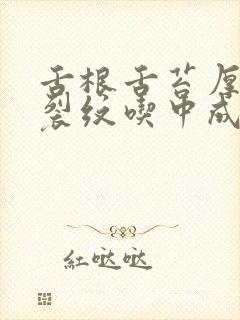 舌根舌苔厚
裂纹喫中成
紅哒哒